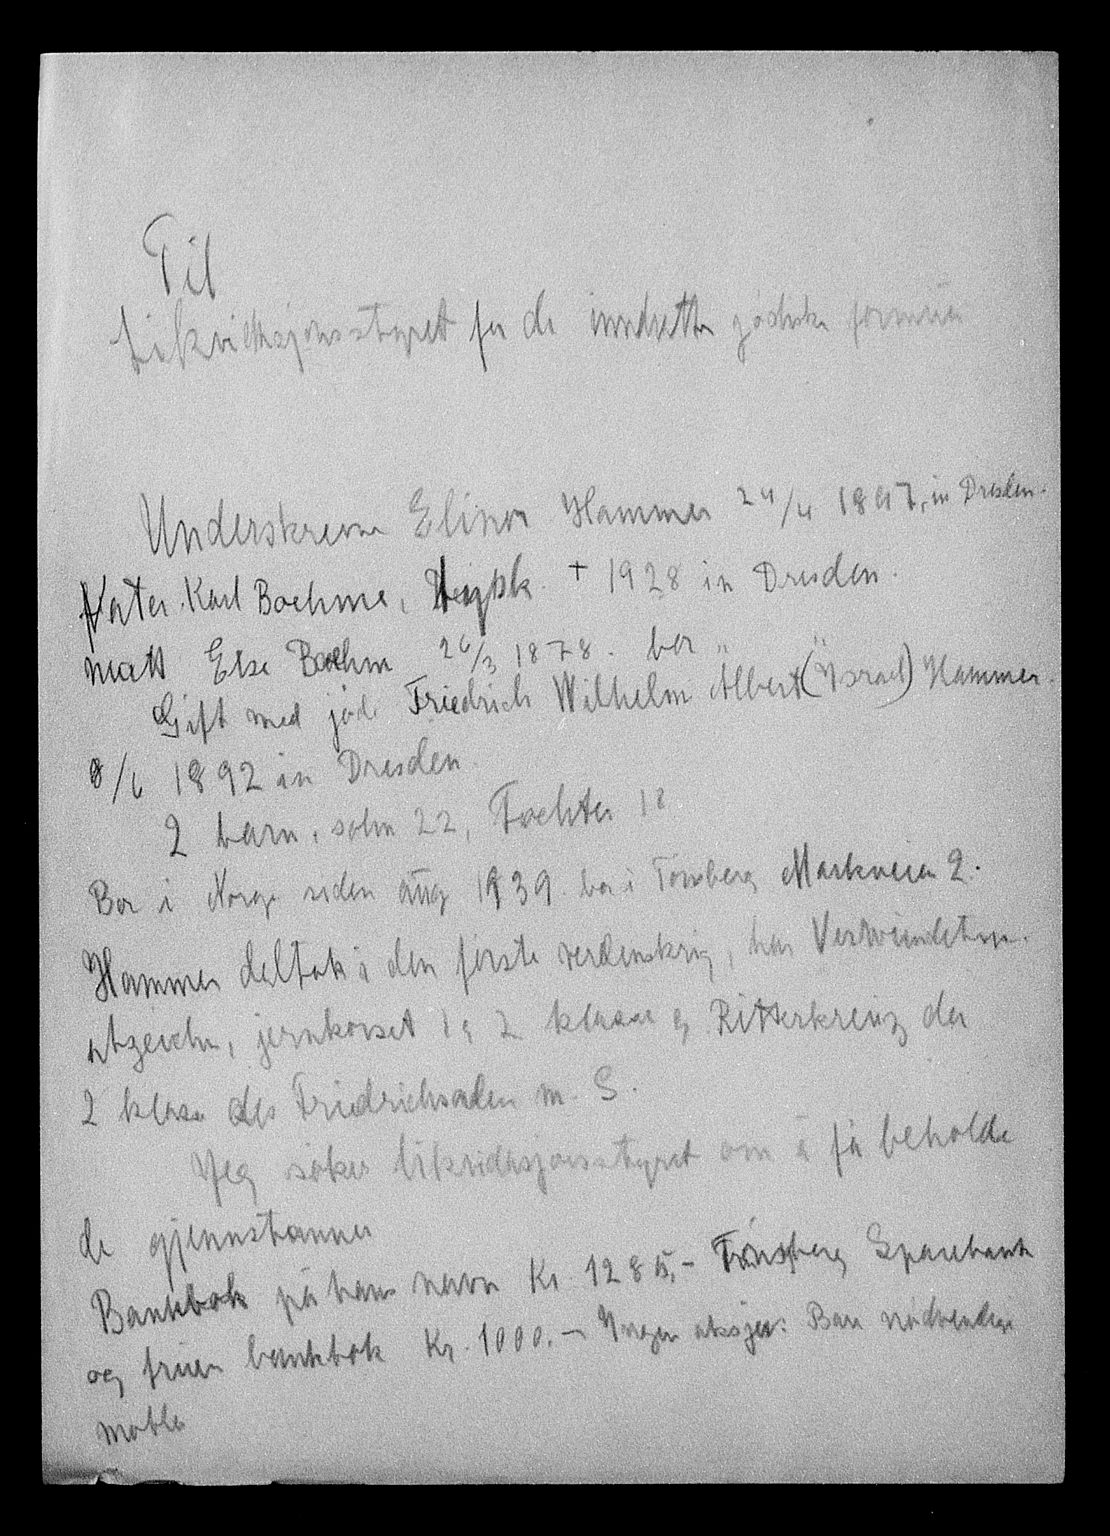 Til
Likvidasjonsstyret for de inndratte jødiske formuer
Underskrevne Elinor Hammer 24/4 1897, in Dresden.
Vater Karl Boehme, † 1928 in Dresden.
Else Boehm 26/3 1878. bor "
Gift med jøde Friedrich Wilhelm Albert ("Israel") Hammer.
8/6 1892 in Dresden.
2 barn, sohn 22, Tochter 18
Bor i Norge siden aug 1939. bor i Tönsberg Markveien 2.
Hammer deltok i den förste verdenskrig, har Verwundeten-
abzeichen, jernkorset 1 og 2 klasse og Ritterkreuz der
2 klasse des Friedrichsorden m. S.
Jeg söker likvidasjonsstyret om å få beholde
de gjennstanner
Bankbok på hans navn Kr. 1285,- Tönsberg Sparebank
og fruen bankbok Kr. 1000.- Ingen aksjer. Bare nödvendige
møbler